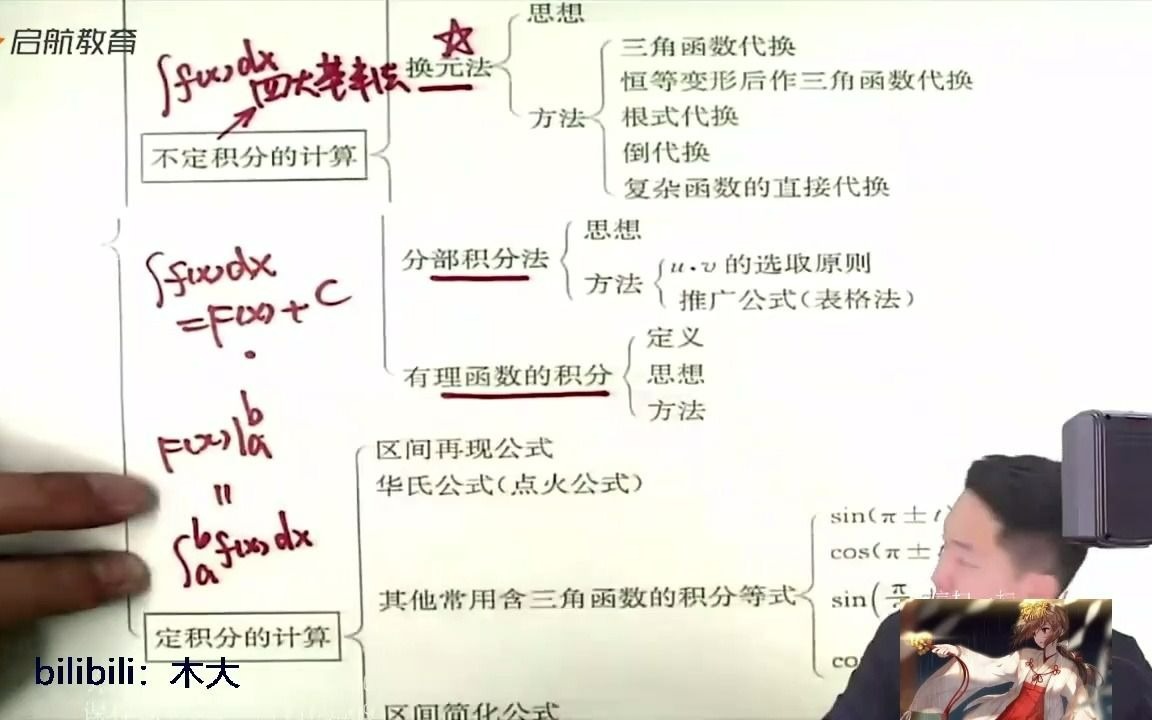 启航教育
思想
∫f(x)dx
四大基本法
换元法
☆
三角函数代换
恒等变形后作三角函数代换
方法
根式代换
倒代换
复杂函数的直接代换
不定积分的计算
思想
分部积分法
方法
u·v 的选取原则
推广公式(表格法)
∫f(x)dx
=F(x)+C
定义
有理函数的积分
思想
方法
F(x)|ₐᵇ
=
∫ₐᵇf(x)dx
区间再现公式
华氏公式(点火公式)
sin(π±t
cos(π±
其他常用含三角函数的积分等式
sin(π
co
定积分的计算
bilibili: 木大
区间简化公式